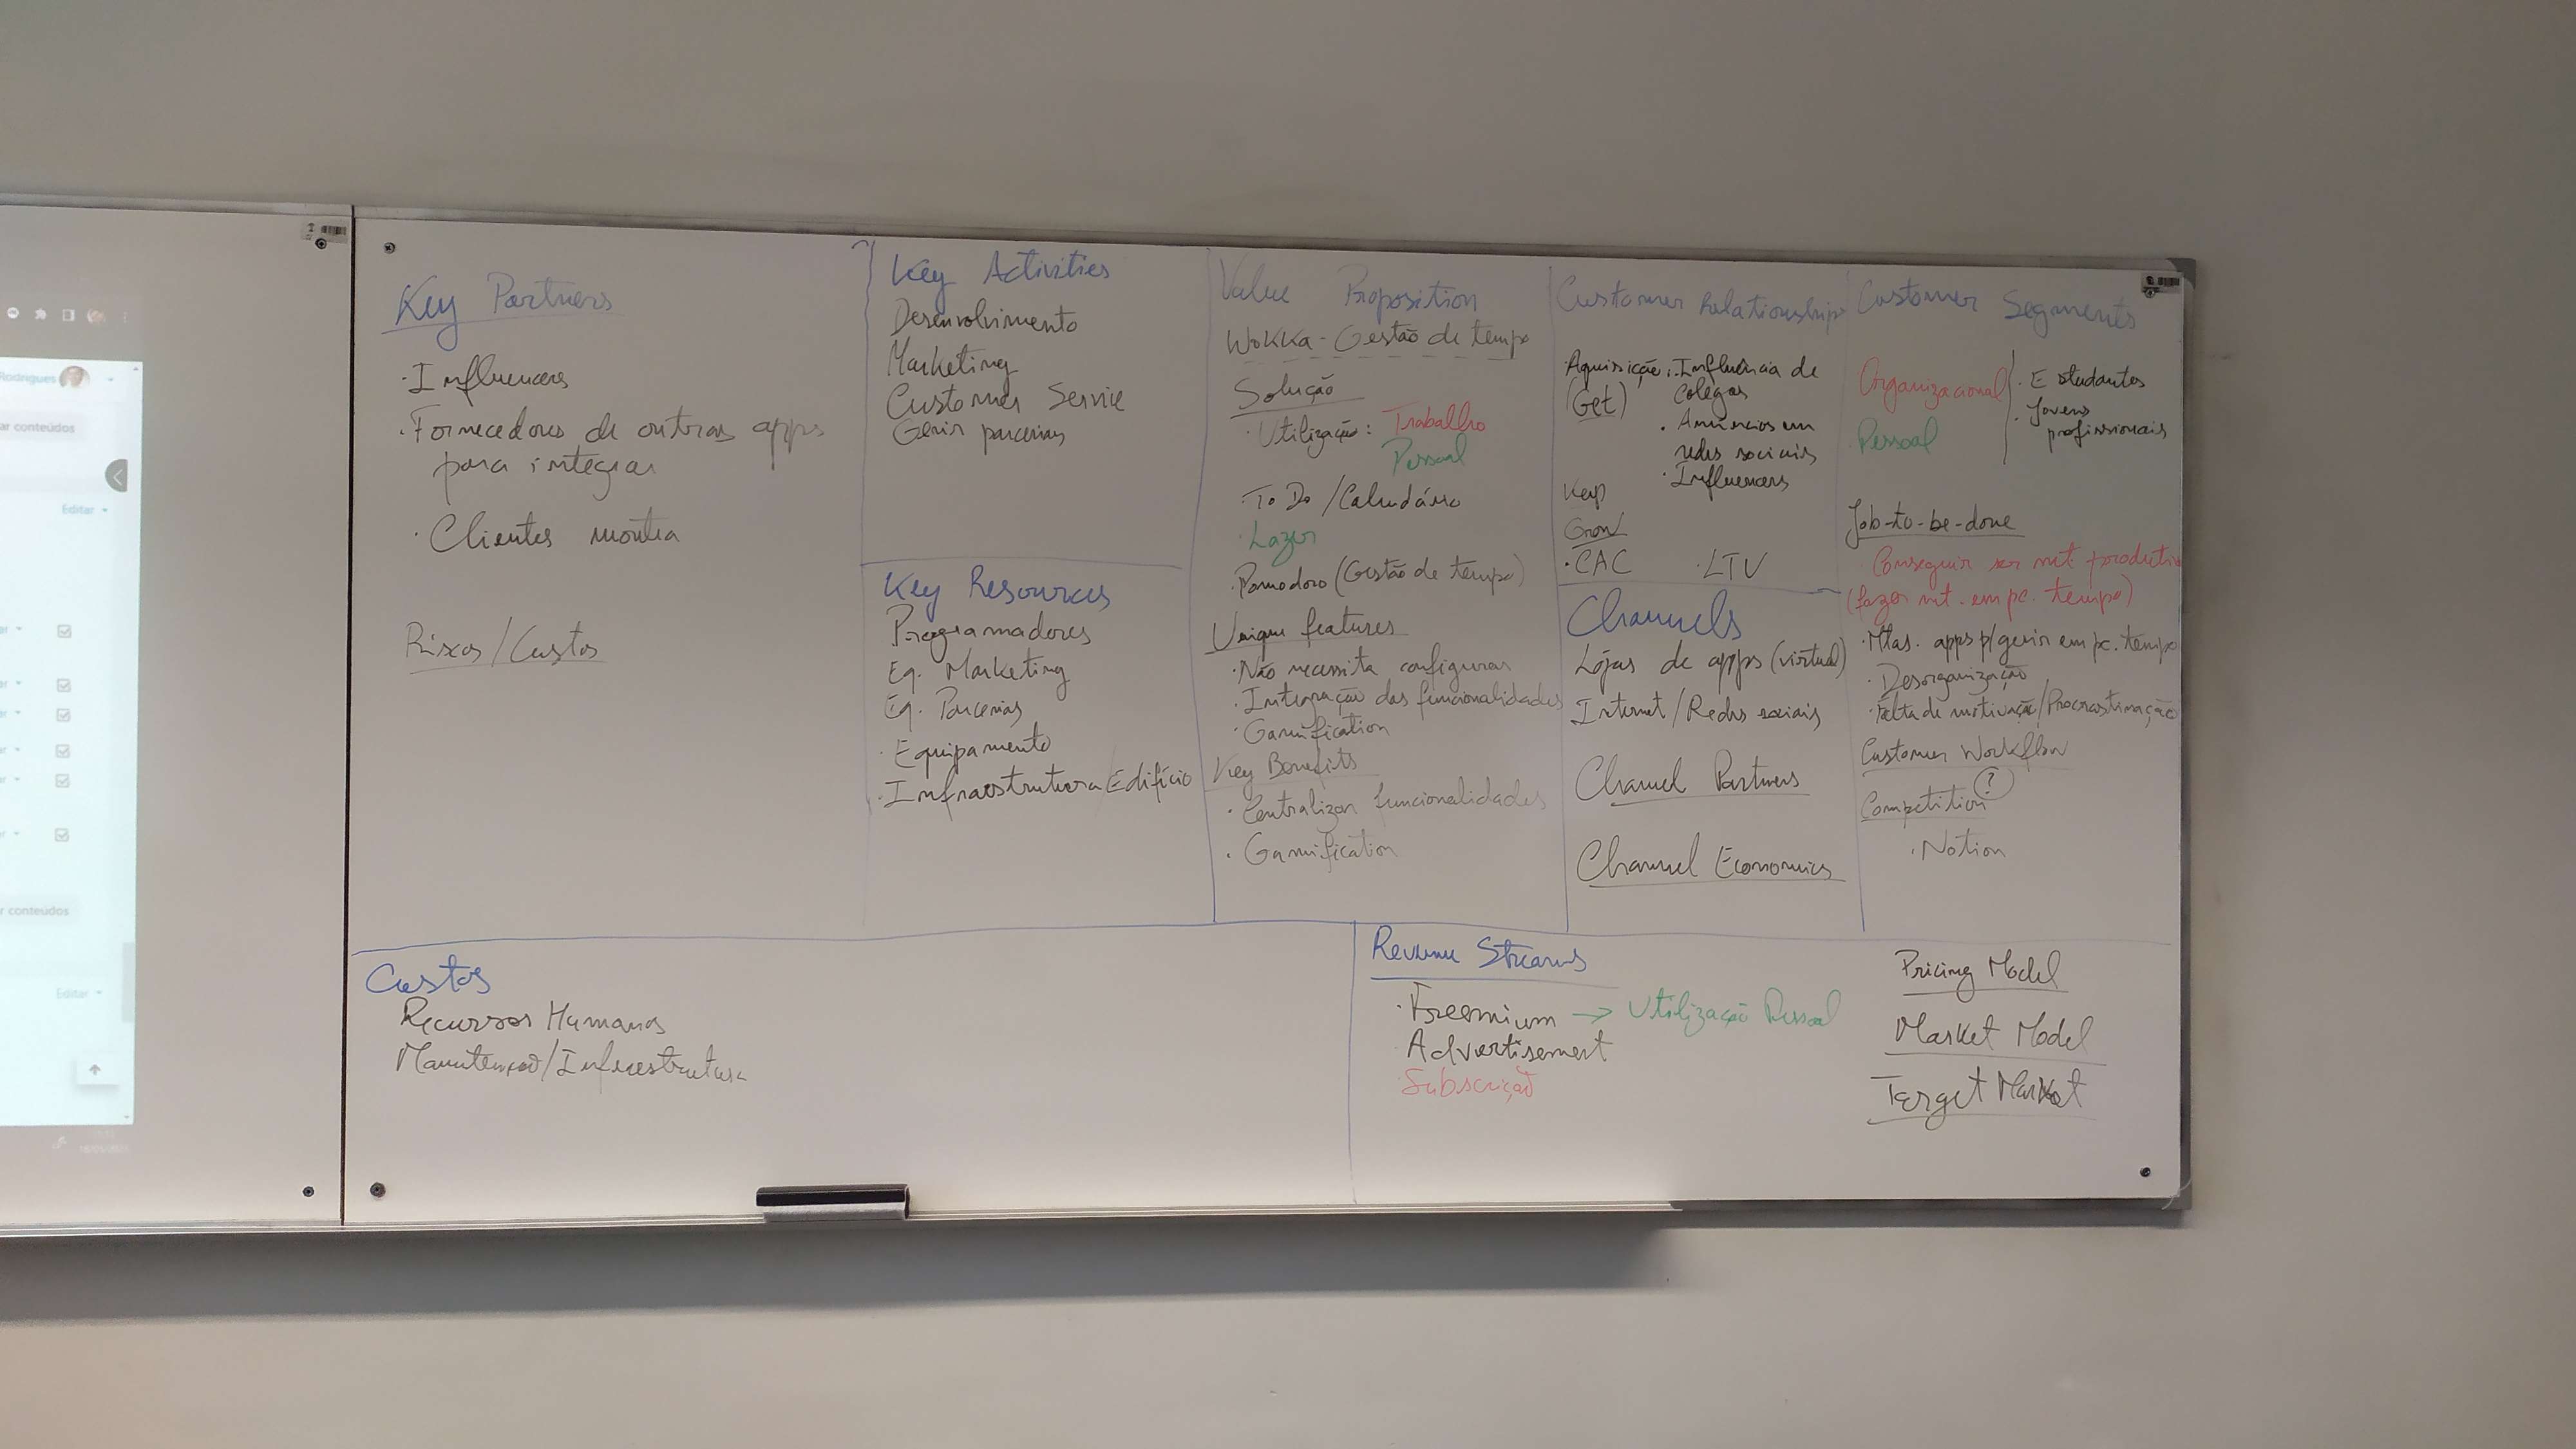 Rodrigues
ar conteúdos
Editar
r conteúdos
Editar
Key Partners
· Influencers
· Fornecedores de outras apps
para integrar
· Clientes montra
Riscos/Custos
Key Activities
Desenvolvimento
Marketing
Customer Service
Gerir parcerias
Key Resources
Programadores
Eq. Marketing
Eq. Parcerias
· Equipamento
· Infraestrutura/Edifício
Value Proposition
WOKKA - Gestão de tempo
Solução
· Utilização: Trabalho
Pessoal
· To Do /Calendário
· Lazer
· Pomodoro (Gestão de tempo)
Unique features
· Não necessita configurar
· Integração das funcionalidades
· Gamification
Key Benefits
· Centralizar funcionalidades
· Gamification
Customer Relationships
· Aquisição: · Influência de
(Get) colegas
· Anúncios em
redes sociais
· Influencers
Keep
Grow
· CAC · LTV
Channels
Lojas de apps (virtual)
Internet/Redes sociais
Channel Partners
Channel Economics
Customer Segments
Organizacional · Estudantes
Pessoal · Jovens
profissionais
Job-to-be-done
· Conseguir ser mt. produtivo
(fazer mt. em pc. tempo)
· Mtas. apps p/gerir em pc. tempo
· Desorganização
· Falta de motivação/Procrastinação
Customer Workflow
(?)
Competition
· Notion
Custos
Recursos Humanos
Manutenção/Infraestrutura
Revenue Streams
· Freemium → Utilização Pessoal
· Advertisement
· Subscrição
Pricing Model
Market Model
Target Market